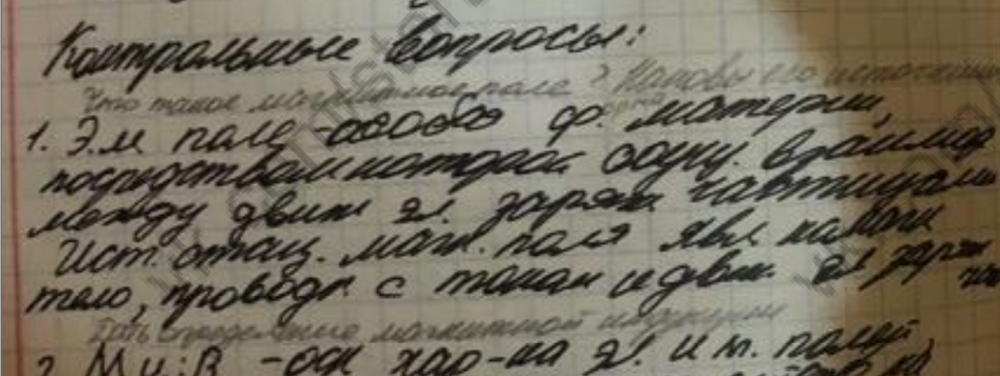 Контрольные вопросы:
Что такое магнитное поле? Каковы его источники
1. Э.м поле - особая ф. материи,
посредством которой осущ. взаимод
между движ эл. заряж частицами
Ист. стац. магн. поля явл намагн
тело, проводн с током и движ эл заряж
Дать определение магнитной индукции
2. М и: В - осн хар-ка эл. и м. полей,